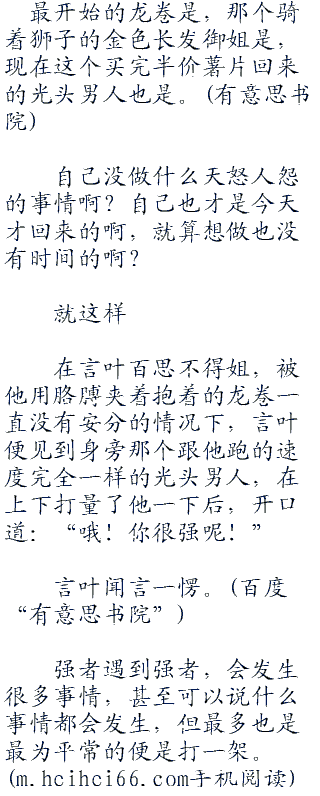 最开始的龙卷是，那个骑
着狮子的金色长发御姐是，
现在这个买完半价薯片回来
的光头男人也是。(有意思书
院)
自己没做什么天怒人怨
的事情啊？自己也才是今天
才回来的啊，就算想做也没
有时间的啊？
就这样
在言叶百思不得姐，被
他用胳膊夹着抱着的龙卷一
直没有安分的情况下，言叶
便见到身旁那个跟他跑的速
度完全一样的光头男人，在
上下打量了他一下后，开口
道：“哦！你很强呢！”
言叶闻言一愣。(百度
“有意思书院”)
强者遇到强者，会发生
很多事情，甚至可以说什么
事情都会发生，但最多也是
最为平常的便是打一架。
(m.hcihci66.com手机阅读)